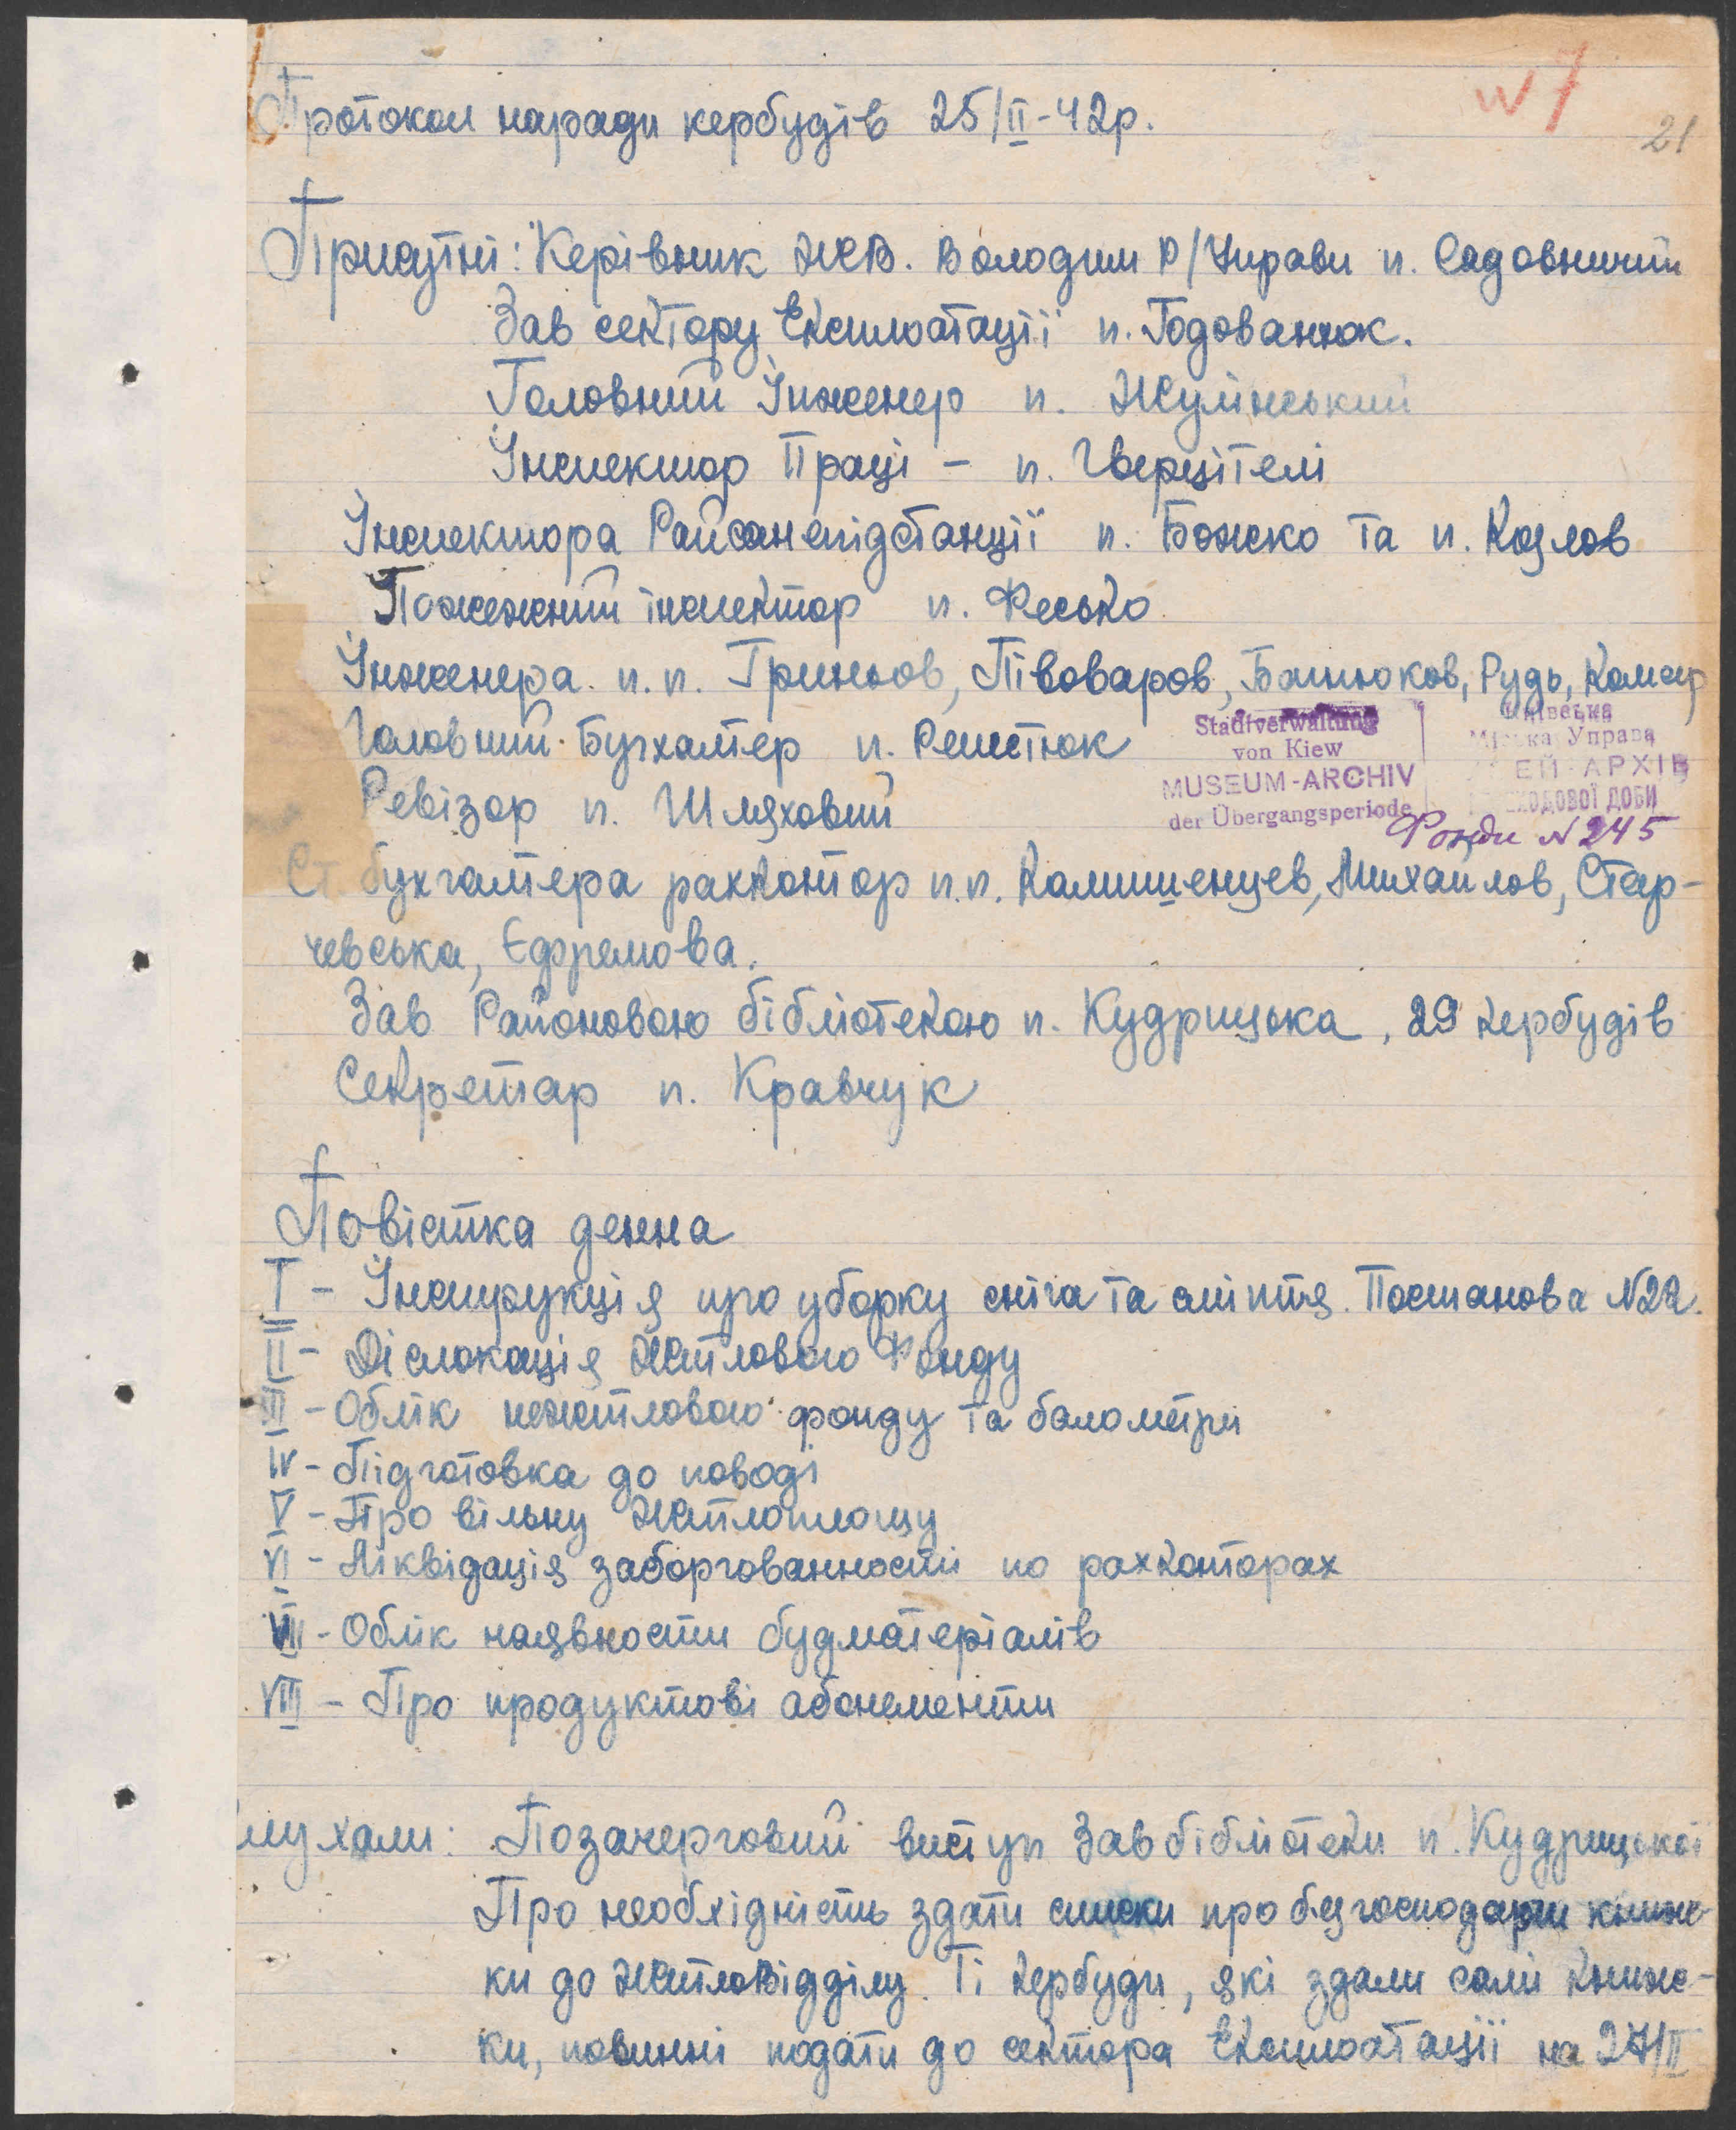 №7
21
Протокол наради кербудів 25/II-42р.
Присутні: Керівник ЖВ. Володим Р/Управи п. Садовничий
Зав сектору Експлоатації п. Годованюк.
Головний Інженер п. Жулінський
Інспектор Праці - п. Гверцителі
Інспектора Райсанепідстанції п. Божко та п. Козлов
Пожежний інспектор п. Фесько
Інженера. п.п. Гриньов, Півоваров, Рудь, Комар
Головний Бухгалтер п. Решетюк
Stadtverwaltung
von Kiew
MUSEUM-ARCHIV
der Übergangsperiode
Київська
Міська Управа
ЕЙ-АРХІВ
ХОДОВОЇ ДОБИ
Фонди №245
Ревізор п. Шляховий
Ст. бухгалтера рахконтор п.п. Калишенцев, Михайлов, Стар-
чевська, Єфремова.
Зав Районовою бібліотекою п. Кудрицька, 29 кербудів
Секретар п. Кравчук
Повістка денна
I - Інструкція про уборку сніга та сміття. Постанова №22.
II - Діслокація Житлового Фонду
III - Облік нежитлового фонду та
IV - Підготовка до поводі
V - Про вільну Житлоплощу
VI - Ліквідація заборгованности по рахконторах
VII - Облік наявности будматеріалів
VIII - Про продуктові абонементи
лухали: Позачерговий виступ Зав бібліотеки п. Кудрицької
Про необхідність здати списки про безгосподарчі книж-
ки до Житловідділу. Ті кербуди, які здали самі книж-
ки, повинні подати до сектора Експлоатації на 27/II